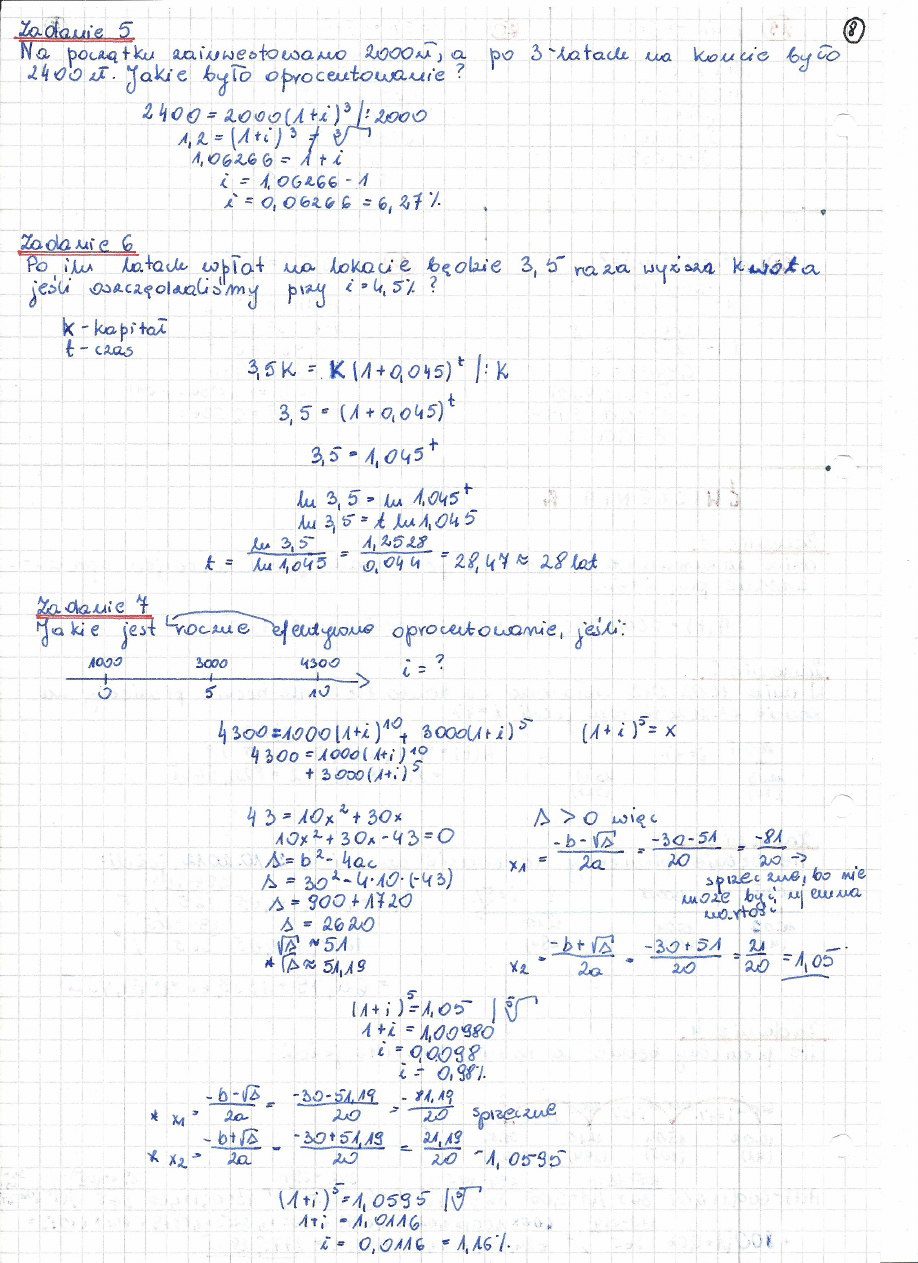 8
Zadanie 5
Na początku zainwestowano 2000zł, a po 3-latach na koncie było
2400 zł. Jakie było oprocentowanie?
2400 = 2000(1+i)³ /:2000
1,2 = (1+i)³ / ³√
1,06266 = 1+i
i = 1,06266 - 1
i = 0,06266 = 6,27%
Zadanie 6
Po ilu latach wpłat na lokacie będzie 3,5 raza wyższa kwota
jeśli oszczędzaliśmy przy i=4,5% ?
K - kapitał
t - czas
3,5K = K(1+0,045)ᵗ /:K
3,5 = (1+0,045)ᵗ
3,5 = 1,045ᵗ
ln 3,5 = ln 1,045ᵗ
ln 3,5 = t ln 1,045
t = ln 3,5 / ln 1,045 = 1,2528 / 0,044 = 28,47 ≈ 28 lat
Zadanie 7
Jakie jest roczne efektywne oprocentowanie, jeśli:
1000 3000 4300 i = ?
0 5 10
4300 = 1000(1+i)¹⁰ + 3000(1+i)⁵ (1+i)⁵ = x
4300 = 1000(1+i)¹⁰
+ 3000(1+i)⁵
43 = 10x² + 30x
10x² + 30x - 43 = 0
Δ = b² - 4ac
Δ = 30² - 4·10·(-43)
Δ = 900 + 1720
Δ = 2620
√Δ ≈ 51
* √Δ ≈ 51,19
Δ > 0 więc
x₁ = -b-√Δ / 2a = -30-51 / 20 = -81 / 20 →
sprzeczne, bo nie
może być ujemna
wartość
x₂ = -b+√Δ / 2a = -30+51 / 20 = 21 / 20 = 1,05
(1+i)⁵ = 1,05 / ⁵√
1+i = 1,00980
i = 0,0098
i = 0,98%
* x₁ = -b-√Δ / 2a = -30-51,19 / 20 = -81,19 / 20 sprzeczne
* x₂ = -b+√Δ / 2a = -30+51,19 / 20 = 21,19 / 20 = 1,0595
(1+i)⁵ = 1,0595 / ⁵√
1+i = 1,0116
i = 0,0116 = 1,16%